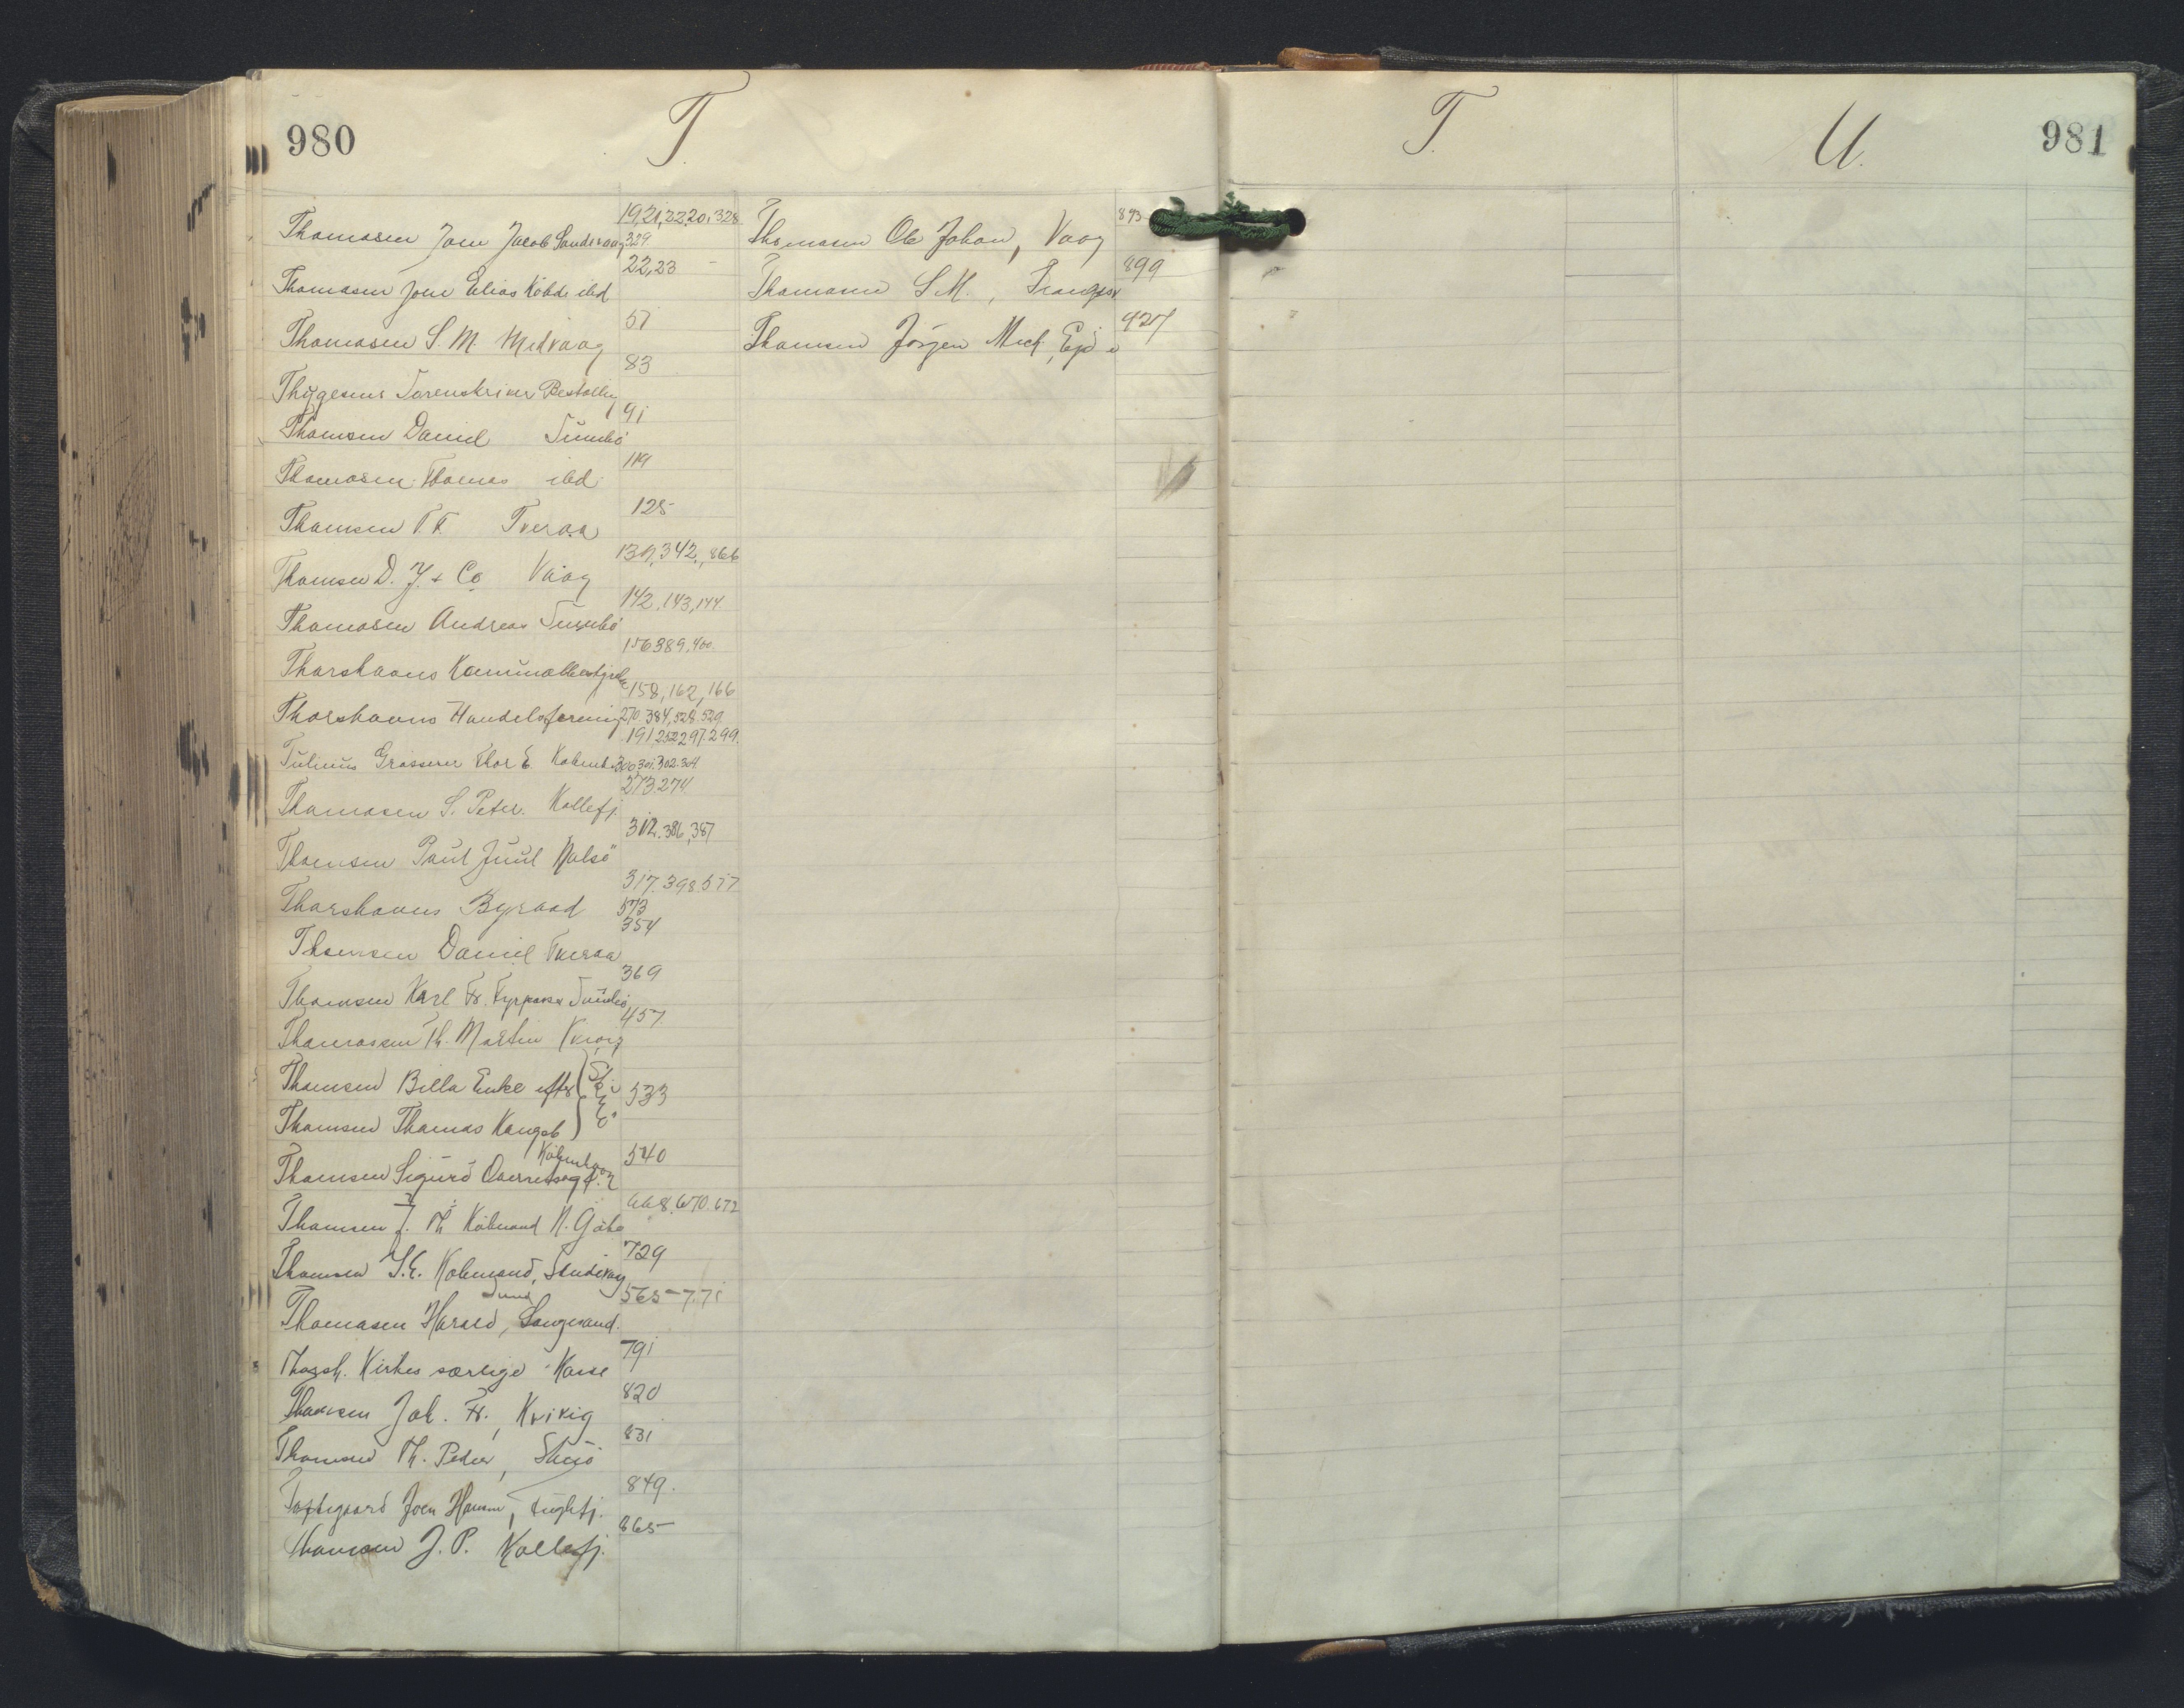 980
T.
Thomasen Joen Jacob Sandevaag 19,21,22,20,328 329
Thomasen Joen Elias Købde ibd 22,23
Thomasen S. M. Midvaag 51
Thygesens Sorenskriver Bestalling 83
Thomsen Daniel Sumbö 91
Thomasen Thomas ibd 119
Thomsen T. F. Tveraa 125
Thomsen D. J. & Co Vaag 139,342,,866
Thomasen Andreas Sumbö 142,143,144
Thorshavns Kommunalbestyrelse 156 389,400.
Thorshavns Handelsforening 158,162,166 270.384,528.529.
Tulinius Grosserer Thor E Kobenh. 191 252 297.299. 300 301.302.304.
Thomasen S. Peter. Kollefj. 273.274
Thomsen Poul Juul Nolsö 312.386,387
Thorshavns Byraad 317.398.577 573
Thomsen Daniel Tveraa 354
Thomsen Karl Fr. Fyrpasser Sumbö 369
Thomassen Th. Martin Kvivig 457
Thomsen Billa Enke efter
Thomsen Thomas Kongsb 533
Thomsen Sigurd Overretssagf. København 540
Thomsen J. Th Købmand N. Gøta 668.670.672
Thomsen J. E. Købmand, Sandevaag 729
Thomasen Harald, Langesand. Sund 565-771
Thorsh. Kirkes særlige Kasse 791
Thomsen Joh. Fr., Kvivig 820
Thomsen Th. Peder, Skuö 831
Toftegaard Joen Hansen, Fuglefj. 849.
Thomsen J. P. Kollefj. 865
Thomasen Ole Johan, Vaag 893
Thomasen S.M., Trangisv 899
Thomsen Jörgen Mich., Ejde 927
T.
U.
981